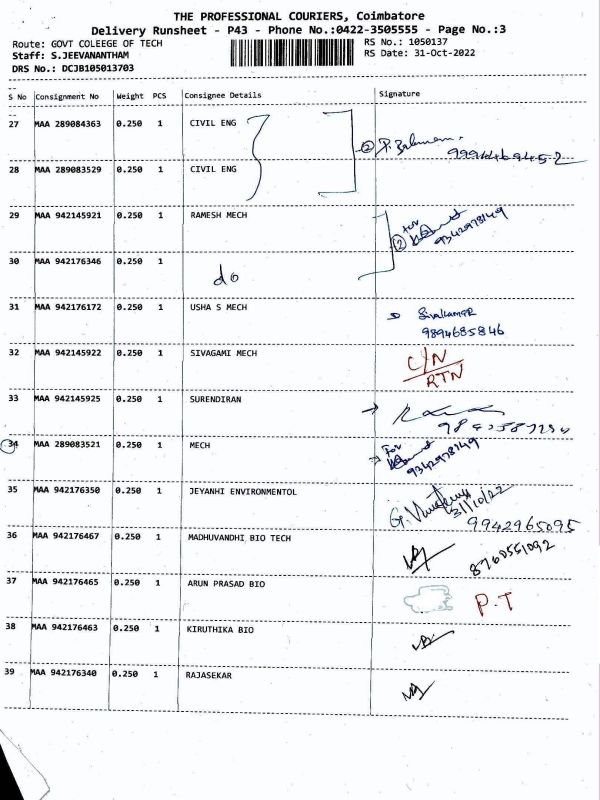 THE PROFESSIONAL COURIERS, Coimbatore
Delivery Runsheet - P43 - Phone No.:0422-3505555 - Page No.:3
Route: GOVT COLEEGE OF TECH
RS No.: 1050137
Staff: S.JEEVANANTHAM
RS Date: 31-Oct-2022
DRS No.: DCJB105013703
S No Consignment No Weight PCS Consignee Details Signature
27 MAA 289084363 0.250 1 CIVIL ENG
9994469452
28 MAA 289083529 0.250 1 CIVIL ENG
29 MAA 942145921 0.250 1 RAMESH MECH
for
2 9342978149
30 MAA 942176346 0.250 1 do
31 MAA 942176172 0.250 1 USHA S MECH Sivakumar
9894685846
32 MAA 942145922 0.250 1 SIVAGAMI MECH C/N
RTN
33 MAA 942145925 0.250 1 SURENDIRAN
34 MAA 289083521 0.250 1 MECH For
9342978149
35 MAA 942176350 0.250 1 JEYANHI ENVIRONMENTOL
31/10/22
9942965095
36 MAA 942176467 0.250 1 MADHUVANDHI BIO TECH 8760551092
37 MAA 942176465 0.250 1 ARUN PRASAD BIO P.T
38 MAA 942176463 0.250 1 KIRUTHIKA BIO
39 MAA 942176340 0.250 1 RAJASEKAR